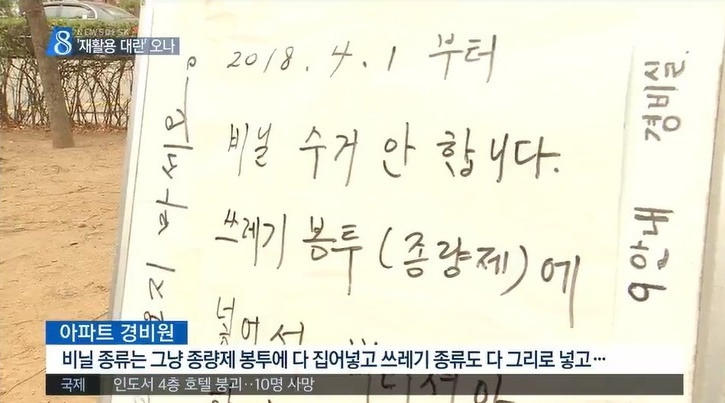 8 NEWSDESK
'재활용 대란' 오나
2018. 4. 1 부터
비닐 수거 안 합니다.
쓰레기 봉투(종량제)에
넣어서
마세요
경비실
안내
아파트 경비원
비닐 종류는 그냥 종량제 봉투에 다 집어넣고 쓰레기 종류도 다 그리로 넣고…
국제 인도서 4층 호텔 붕괴‥10명 사망